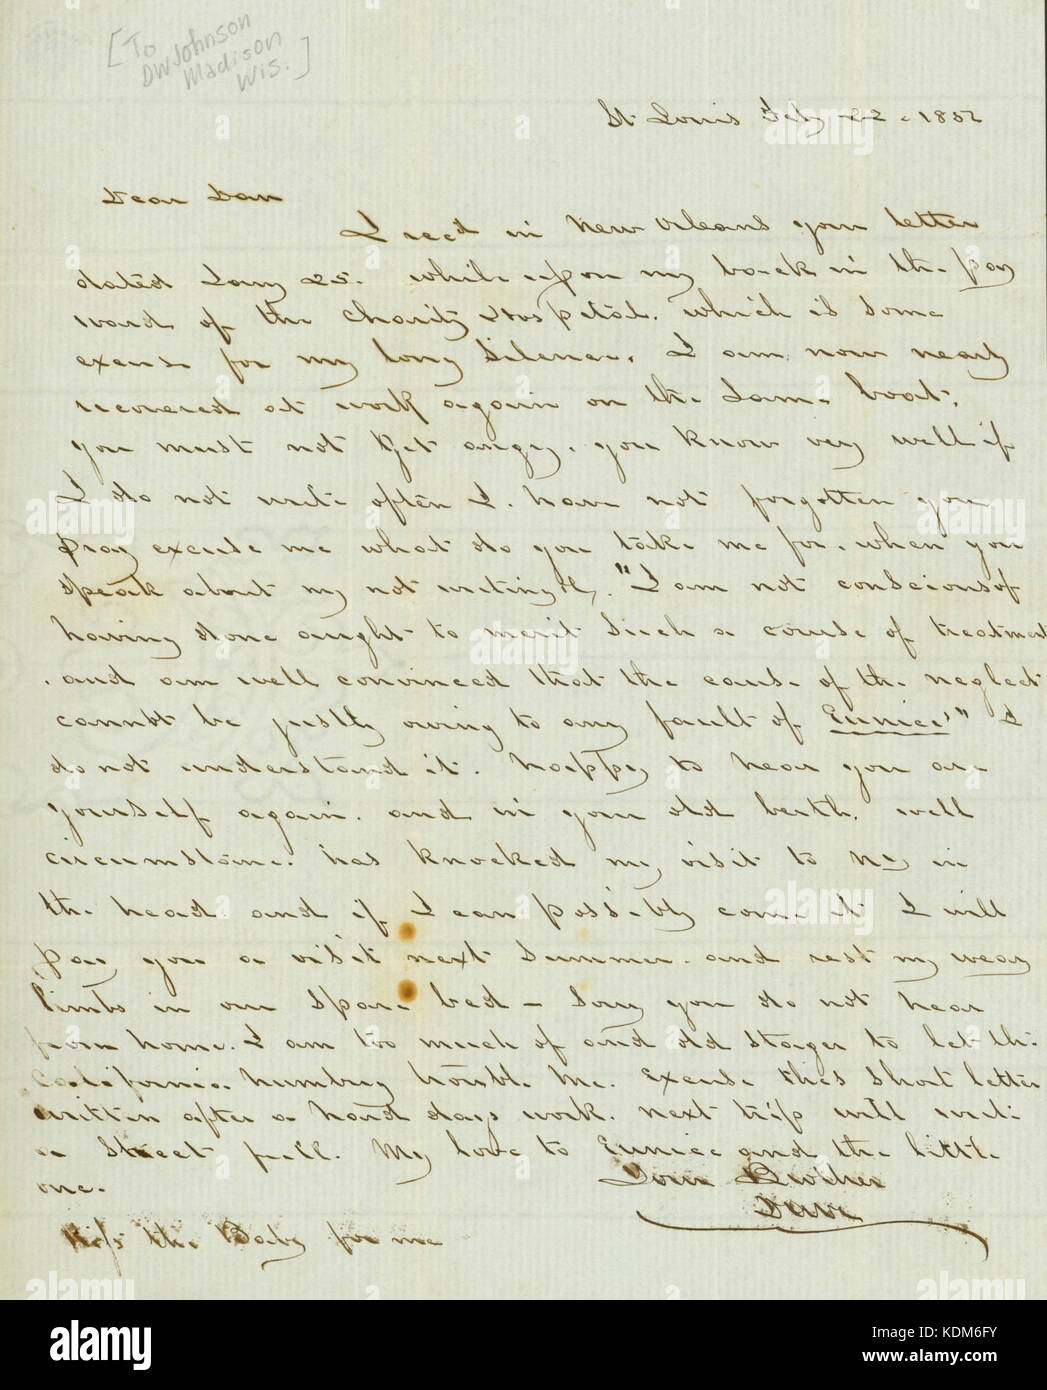 [To
DW Johnson
Madison
Wis.]
St Louis Feby 22. 1852
Dear Dan
I recd in New Orleans your letter
dated Jany 25. while upon my back in the pay
ward of the Charity Hospital. which is some
excuse for my long silence. I am now nearly
recovered at work again on the same boat.
you must not get angry. you know very well if
I do not write often I have not forgotten you
pray excuse me what do you take me for. when you
speak about my not writing &. "I am not conscious of
having done aught to merit such a course of treatment
and am well convinced that the cause of the neglect
cannot be justly owing to any fault of Eunice'" I
do not understand it. happy to hear you are
yourself again. and in your old berth. well
circumstance has knocked my visit to NY in
the head and if I can possibly come it I will
pay you a visit next summer. and rest my weary
limbs in our spare bed – sorry you do not hear
from home. I am too much of and old stager to let the
California humbug trouble me. Excuse this short letter
written after a hard days work. next trip will write
a street full. My love to Eunice and the little
one.
Your Brother
Dave
Kiss the Baby for me
alamy stock photo
KDM6FY